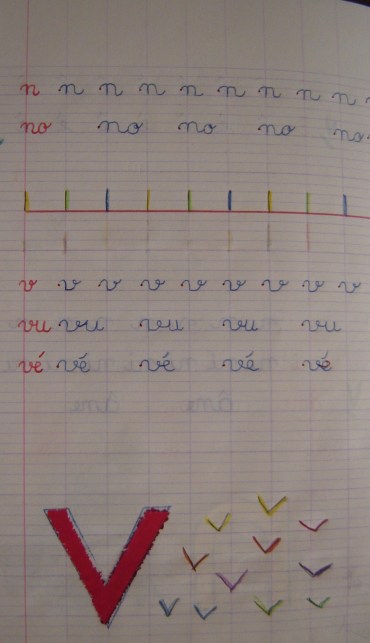 n n n n n n n n n
no no no no no
v v v v v v v v v
vu vu vu vu vu
vé vé vé vé vé
V